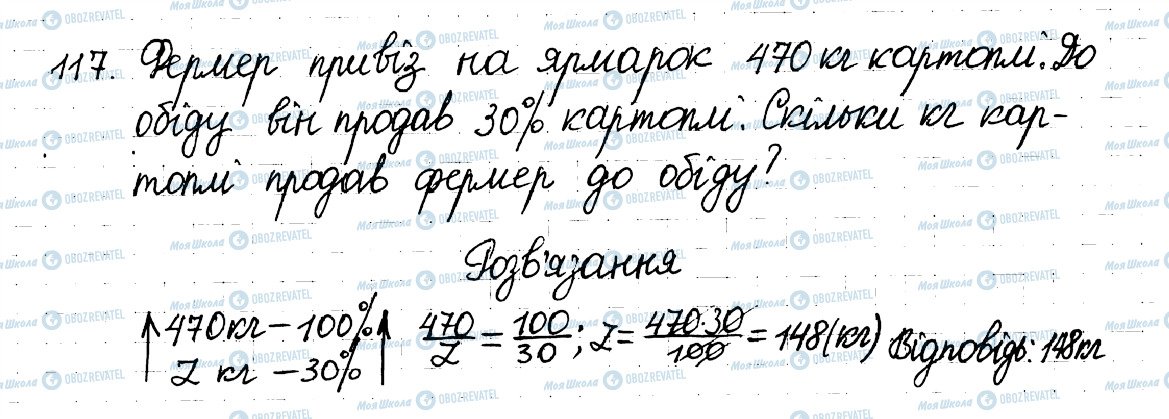 117. Фермер привіз на ярмарок 470 кг картоплі. До
обіду він продав 30% картоплі. Скільки кг кар-
топлі продав фермер до обіду?
Розв'язання
↑470 кг – 100%↑ 470/z = 100/30; z = 470·30/100 = 148(кг) Відповідь: 148 кг
z кг – 30%